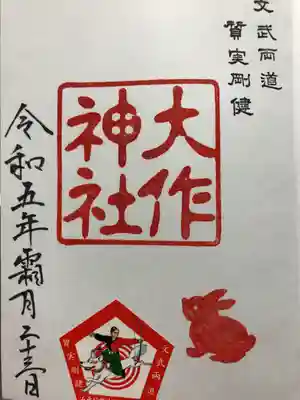 文武両道
質実剛健
大作
神社
令和五年霜月二十三日
文武両道
質実剛健